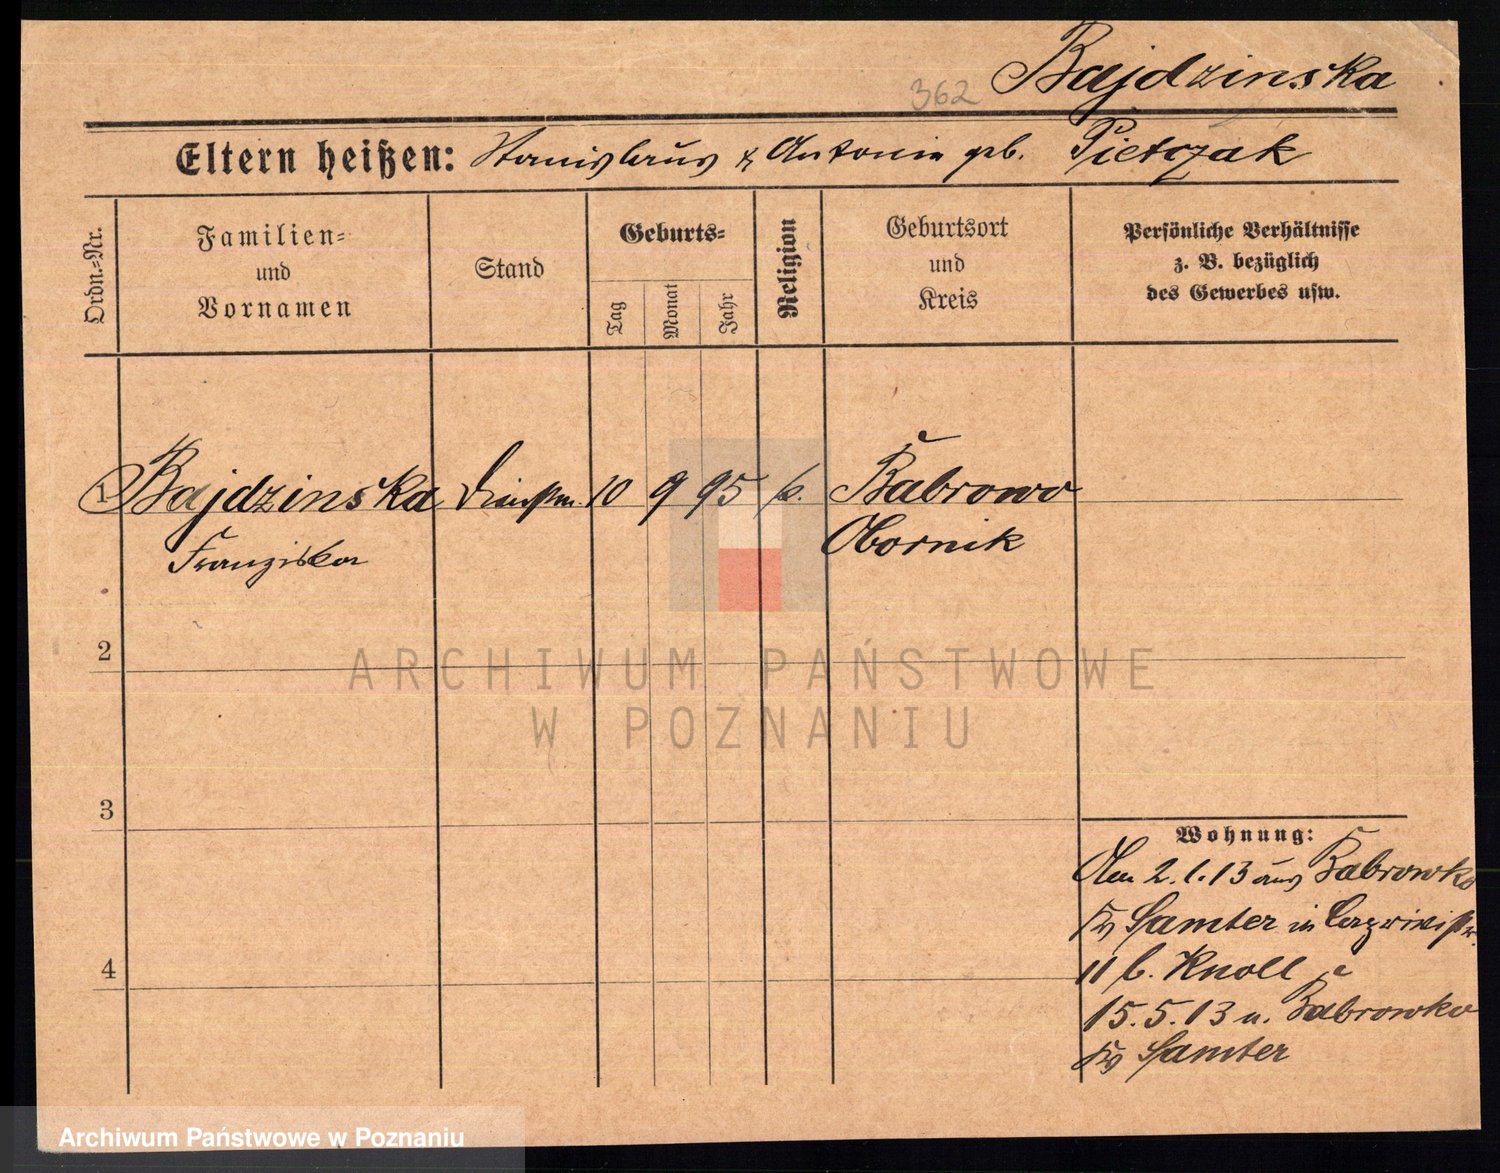 362 Bajdzinska
Eltern heißen: Stanislaus & Antonie geb. Pietczak
Ordn.-Nr.
Familien-
und
Vornamen
Stand
Geburts-
Tag
Monat
Jahr
Religion
Geburtsort
und
Kreis
Persönliche Verhältnisse
z. B. bezüglich
des Gewerbes usw.
1 Bajdzinska Dienstm. 10 9 95 k. Babrowo
Franziska Obornik
2
ARCHIWUM PAŃSTWOWE
W POZNANIU
3
Wohnung:
Am 2.1.13 aus Babrowko
Kr Samter in
11 b. Knoll
4
15.5.13 n. Babrowko
Kr Samter
Archiwum Państwowe w Poznaniu